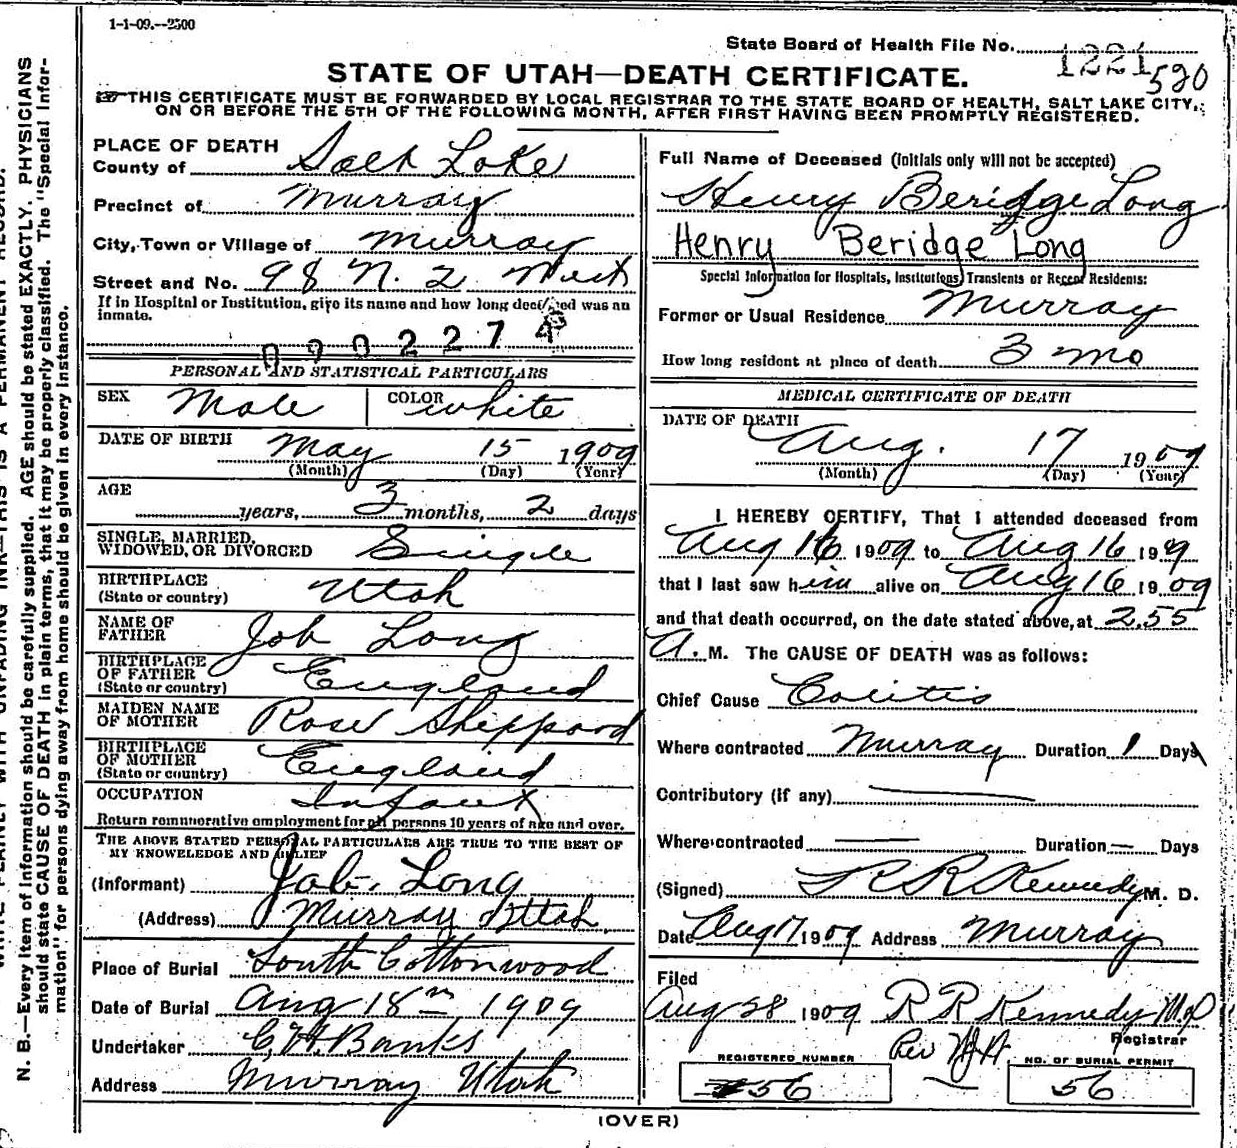 1-1-09.--2500
State Board of Health File No. 1221 520
STATE OF UTAH—DEATH CERTIFICATE.
THIS CERTIFICATE MUST BE FORWARDED BY LOCAL REGISTRAR TO THE STATE BOARD OF HEALTH, SALT LAKE CITY,
ON OR BEFORE THE 5TH OF THE FOLLOWING MONTH, AFTER FIRST HAVING BEEN PROMPTLY REGISTERED.
PLACE OF DEATH
County of Salt Lake
Precinct of Murray
City, Town or Village of Murray
Street and No. 98 N. 2 West
If in Hospital or Institution, give its name and how long deceased was an
inmate.
000227
PERSONAL AND STATISTICAL PARTICULARS
SEX Male COLOR white
DATE OF BIRTH May 15 1909
(Month) (Day) (Year)
AGE
years, 3 months, 2 days
SINGLE, MARRIED,
WIDOWED, OR DIVORCED Single
BIRTHPLACE
(State or country) Utah
NAME OF
FATHER Job Long
BIRTHPLACE
OF FATHER
(State or country) England
MAIDEN NAME
OF MOTHER Rose Sheppard
BIRTHPLACE
OF MOTHER
(State or country) England
OCCUPATION Infant
Return remunorative employment for all persons 10 years of age and over.
THE ABOVE STATED PERSONAL PARTICULARS ARE TRUE TO THE BEST OF
MY KNOWELEDGE AND BELIEF
(Informant) Job. Long
(Address) Murray Utah.
Place of Burial South Cottonwood
Date of Burial Aug 18th 1909
Undertaker C. H. Banks
Address Murray Utah
Full Name of Deceased (Initials only will not be accepted)
Henry Beridge Long
Henry Beridge Long
Special Information for Hospitals, Institutions, Transients or Recent Residents:
Former or Usual Residence Murray
How long resident at place of death 3 mo
MEDICAL CERTIFICATE OF DEATH
DATE OF DEATH
Aug. 17 1909
(Month) (Day) (Year)
I HEREBY CERTIFY, That I attended deceased from
Aug 16 1909 to Aug 16 1909
that I last saw him alive on Aug 16 1909
and that death occurred, on the date stated above, at 2.55
A. M. The CAUSE OF DEATH was as follows:
Chief Cause Colitis
Where contracted Murray Duration 1 Days
Contributory (if any)
Where contracted — Duration — Days
(Signed) R R Kennedy M. D.
Date Aug 17 1909 Address Murray
Filed
Aug 28 1909 R R Kennedy MD
Registrar
REGISTERED NUMBER
56
NO. OF BURIAL PERMIT
56
(OVER)
N. B.—Every item of information should be carefully supplied. AGE should be stated EXACTLY. PHYSICIANS
should state CAUSE OF DEATH in plain terms, that it may be properly classified. The "Special Infor-
mation" for persons dying away from home should be given in every instance.